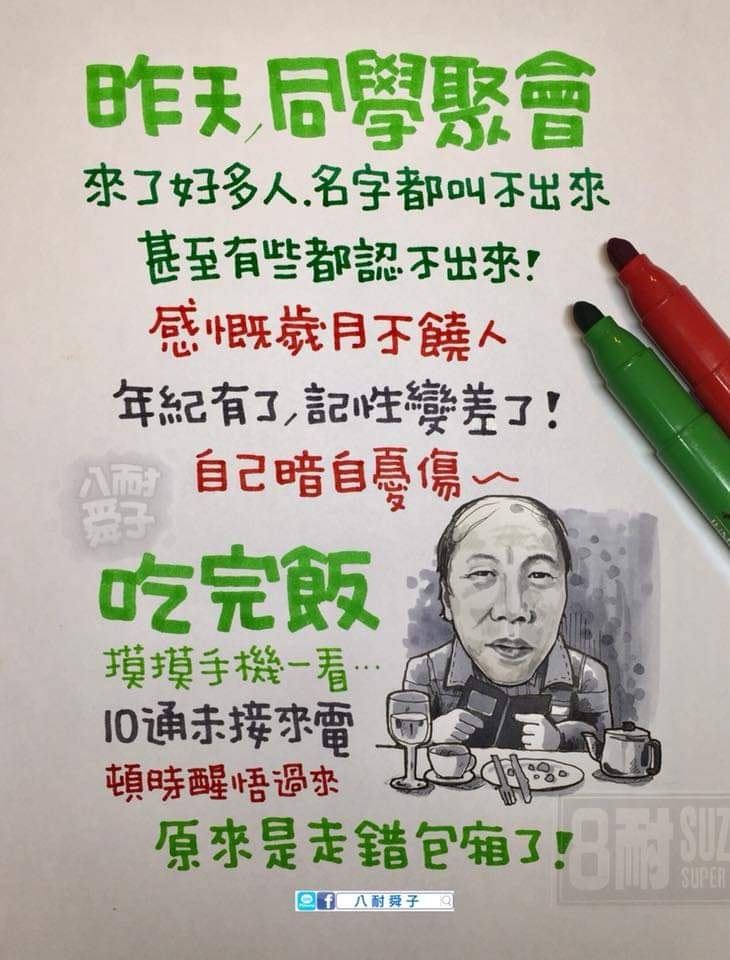 昨天,同學聚會
來了好多人.名字都叫不出來
甚至有些都認不出來!
感慨歲月不饒人
年紀有了,記性變差了!
自己暗自憂傷～
八耐
舜子
吃完飯
摸摸手機一看…
10通未接來電
頓時醒悟過來
原來是走錯包廂了!
8耐 SUZ
SUPER
八耐舜子